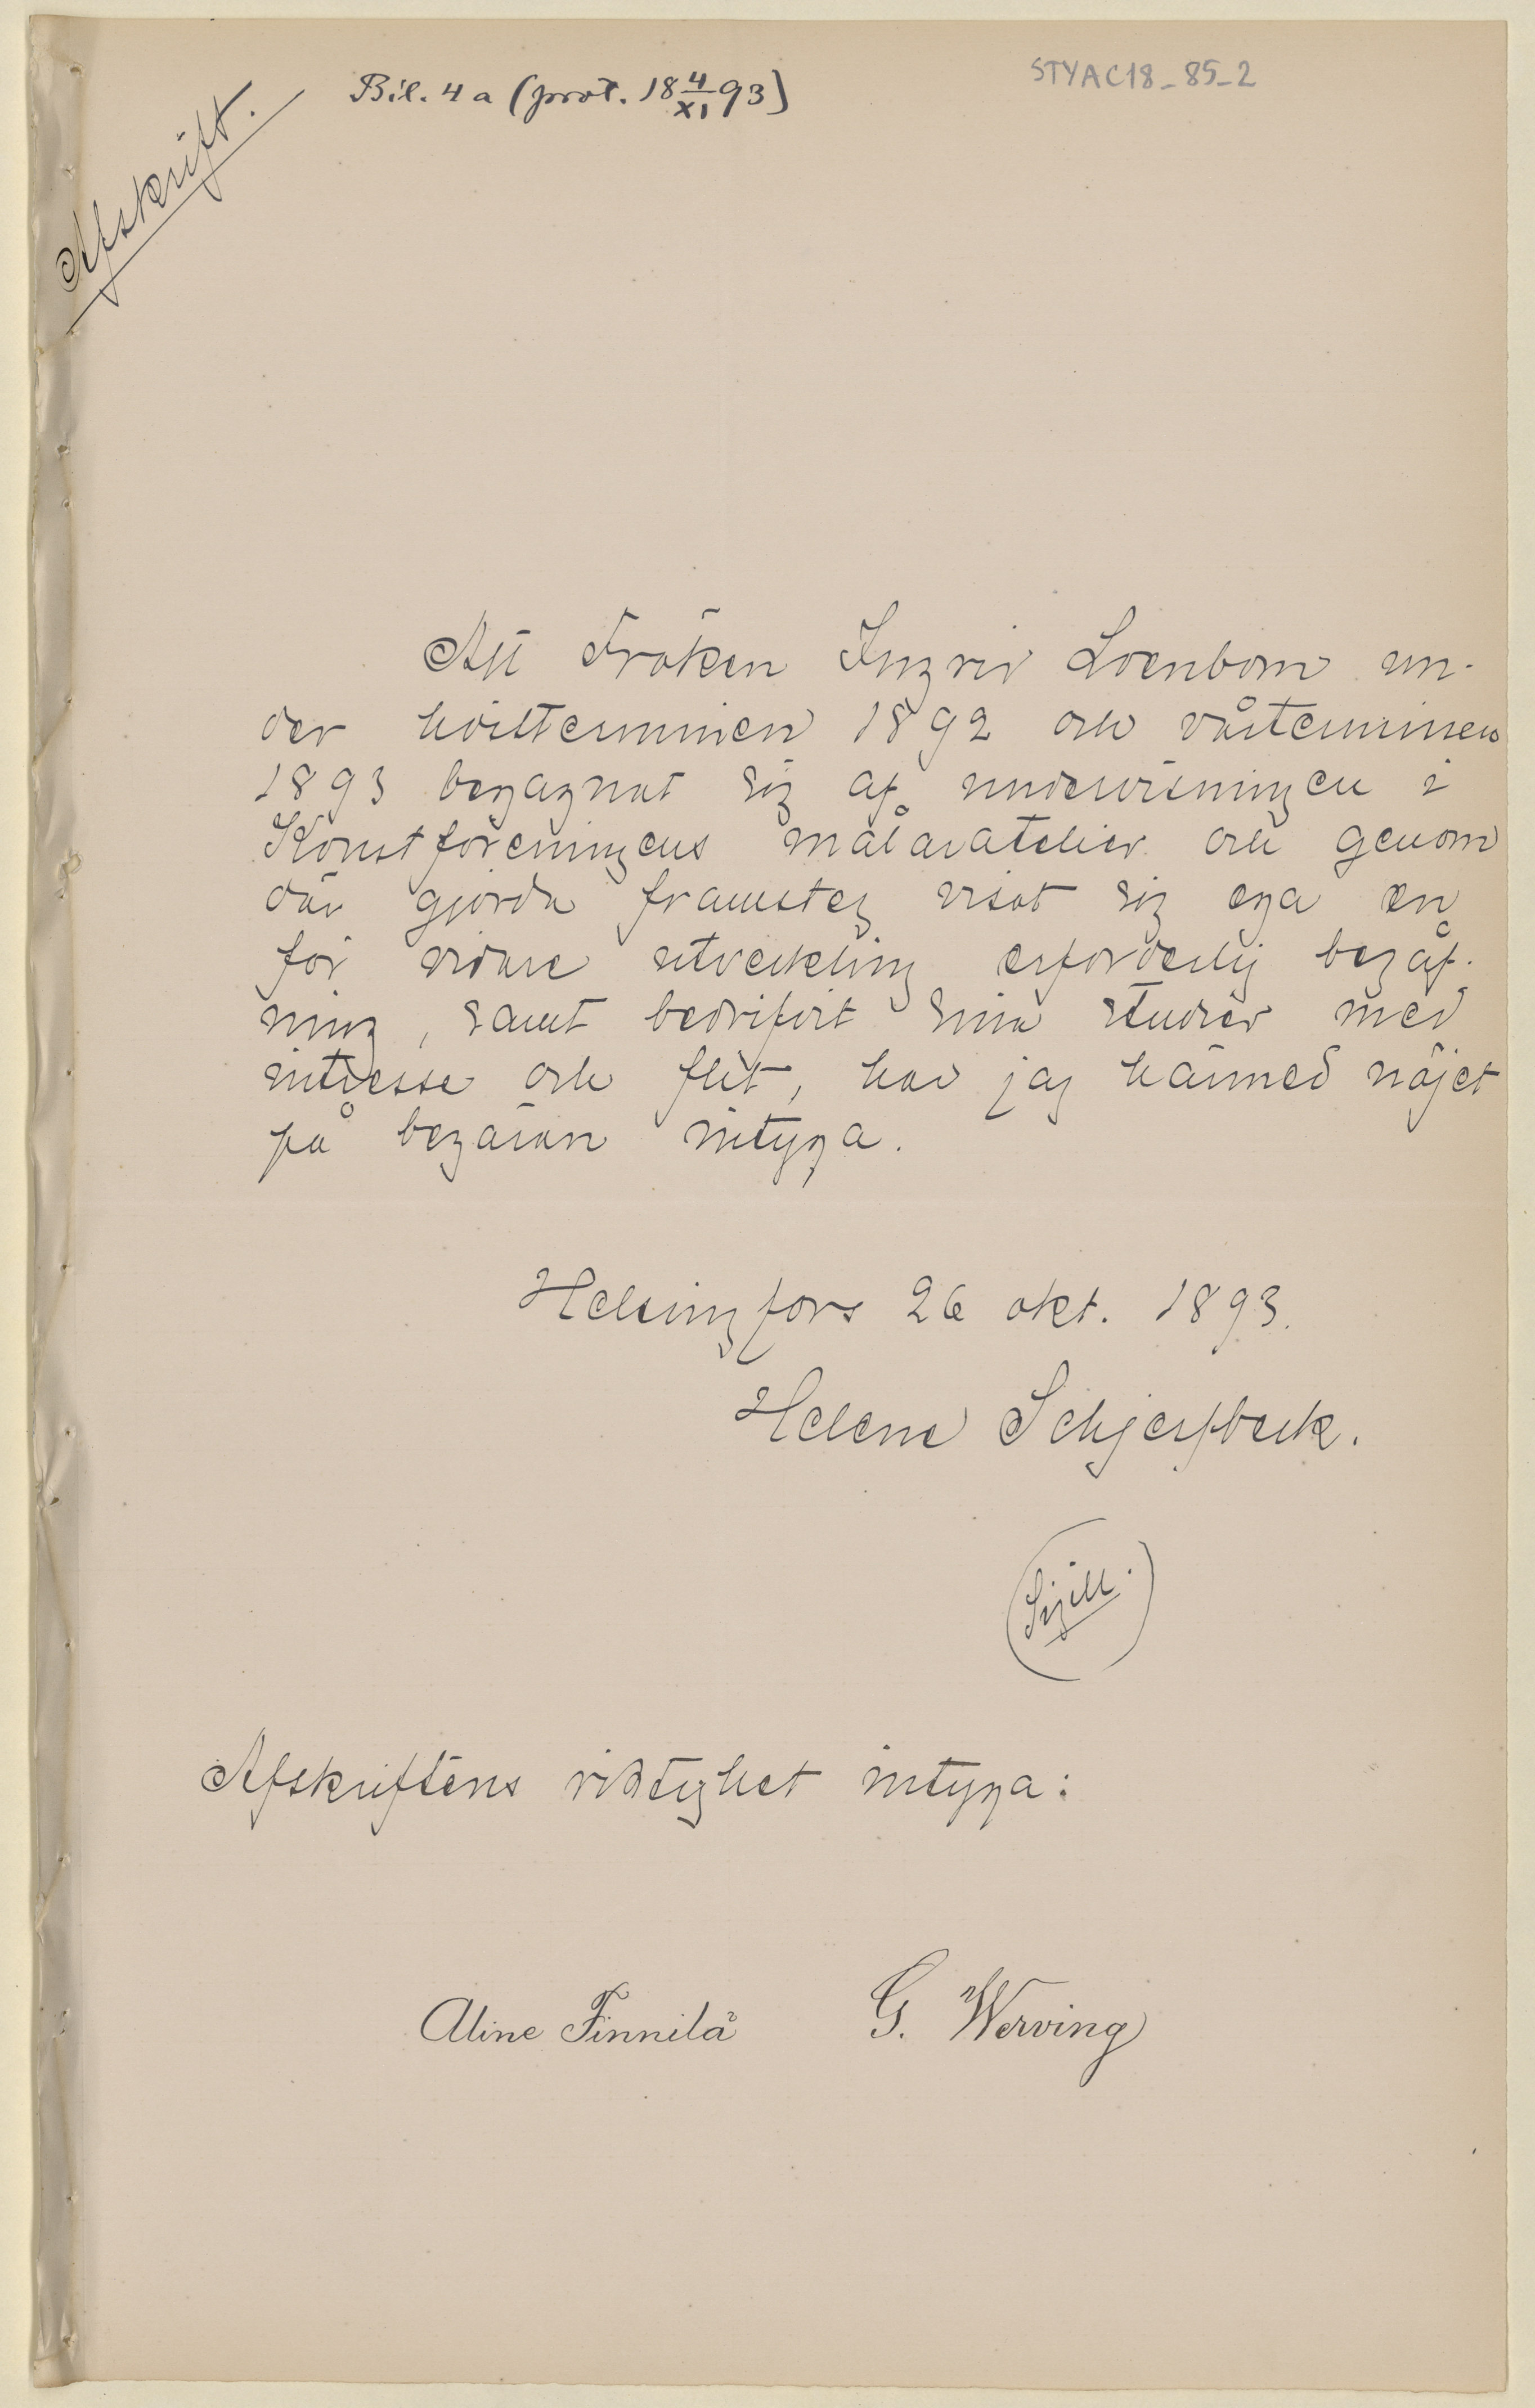 Bil. 4 a (prot. 18 4/XI 93)
STYAC18_85_2
Afskrift.
Att Fröken Ingrid Loenbom un-
der höstterminen 1892 och vårterminen
1893 begagnat sig af undervisningen i
Konstföreningens målaratelier och genom
där gjorda framsteg visat sig ega en
för vidare utveckling erforderlig begåf-
ning, samt bedrifvit sina studier med
intresse och flit, har jag härmed nöjet
på begäran intyga.
Helsingfors 26 okt. 1893.
Helene Schjerfbeck.
(Sigill.)
Afskriftens riktighet intyga:
Aline Finnilä G. Werving